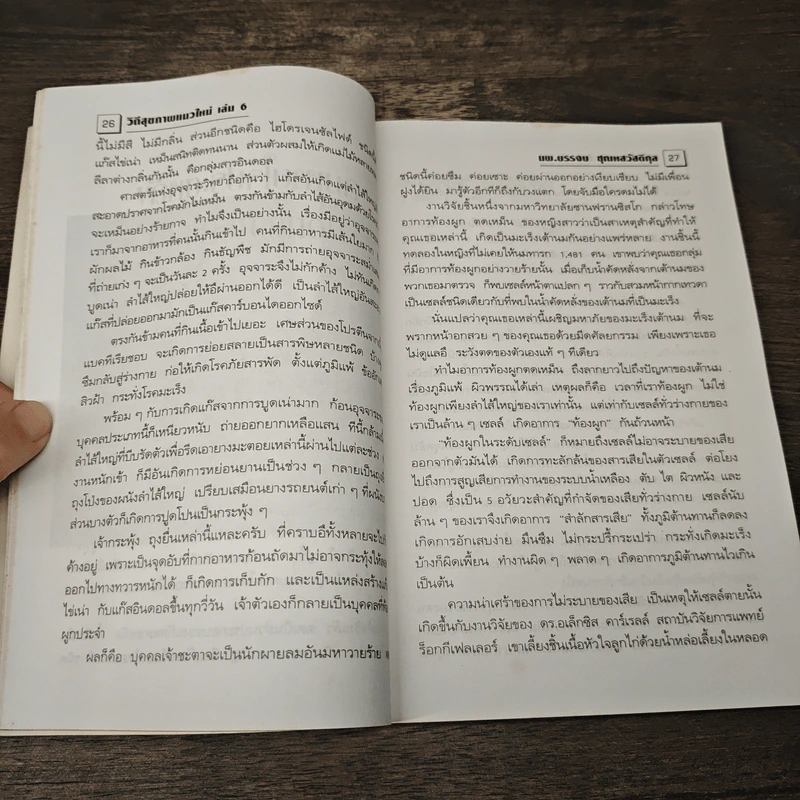 26 วิถีสุขภาพแนวใหม่ เล่ม 6
นี้ไม่มีสี ไม่มีกลิ่น ส่วนอีกชนิดคือ ไฮโดรเจนซัลไฟด์
แก๊สไข่เน่า เหม็นสนิทติดทนนาน ส่วนตัวผสมให้เกิดแม่ไม้
ลีลาต่างกลิ่นกันนั้น คือกลุ่มสารอินดอล
ศาสตร์แห่งอุจจาระวิทยาถือกันว่า แก๊สอันเกิดแต่ลำไส้
สะอาดปราศจากโรคมักไม่เหม็น ตรงกันข้ามกับลำไส้อันอุดม
จะเหม็นอย่างร้ายกาจ ทำไมจึงเป็นอย่างนั้น เรื่องมีอยู่ว่าอุจจาระ
เราก็มาจากอาหารที่คนนั้นกินเข้าไป คนที่กินอาหารมีเส้นใยมาก
ผักผลไม้ กินข้าวกล้อง กินธัญพืช มักมีการถ่ายอุจจาระสม่ำเสมอ
ที่ถ่ายเก่ง ๆ จะเป็นวันละ 2 ครั้ง อุจจาระจึงไม่กักค้าง ไม่ทันเกิด
บูดเน่า ลำไส้ใหญ่ปล่อยให้อึผ่านออกได้ดี เป็นลำไส้ใหญ่อัน
แก๊สที่ปล่อยออกมามักเป็นแก๊สคาร์บอนไดออกไซด์
ตรงกันข้ามคนที่กินเนื้อเข้าไปเยอะ เศษส่วนของโปรตีนจาก
แบคทีเรียชอบ จะเกิดการย่อยสลายเป็นสารพิษหลายชนิด
ซึมกลับสู่ร่างกาย ก่อให้เกิดโรคภัยสารพัด ตั้งแต่ภูมิแพ้
สิวฝ้า กระทั่งโรคมะเร็ง
พร้อม ๆ กับการเกิดแก๊สจากการบูดเน่ามาก ก้อนอุจจาระ
บุคคลประเภทนี้ก็เหนียวหนับ ถ่ายออกยากเหลือแสน ทีนี้กล้าม
ลำไส้ใหญ่ที่บีบรัดตัวเพื่อรีดเอายางมะตอยเหล่านี้ผ่านไปแต่ละช่วง
งานหนักเข้า ก็มีอันเกิดการหย่อนยานเป็นช่วง ๆ กลายเป็นถุง
ถุงโป่งของผนังลำไส้ใหญ่ เปรียบเสมือนยางรถยนต์เก่า ๆ ที่ผนัง
ส่วนบางตัวก็เกิดการปูดโปนเป็นกระพุ้ง ๆ
เจ้ากระพุ้ง ถุงยื่นเหล่านี้แหละครับ ที่คราบอึทั้งหลายจะไป
ค้างอยู่ เพราะเป็นจุดอับที่กากอาหารก้อนถัดมาไม่อาจกระทุ้งให้
ออกไปทางทวารหนักได้ ก็เกิดการเก็บกัก และเป็นแหล่งสร้าง
ไข่เน่า กับแก๊สอินดอลขึ้นทุกวี่วัน เจ้าตัวเองก็กลายเป็นบุคคลที่
ผูกประจำ
ผลก็คือ บุคคลเจ้าชะตาจะเป็นนักผายลมอันมหาวายร้าย
นพ.บรรจบ ชุณหสวัสดิกุล 27
ชนิดนี้ค่อยซึม ค่อยเซาะ ค่อยผ่านออกอย่างเงียบเชียบ ไม่มีเพื่อน
ฝูงได้ยิน มารู้ตัวอีกทีก็ถึงกับวงแตก โดยจับมือใครดมไม่ได้
งานวิจัยชิ้นหนึ่งจากมหาวิทยาลัยซานฟรานซิสโก กล่าวโทษ
อาการท้องผูก ตดเหม็น ของหญิงสาวว่าเป็นสาเหตุสำคัญที่ทำให้
คุณเธอเหล่านี้ เกิดเป็นมะเร็งเต้านมกันอย่างแพร่หลาย งานชิ้นนี้
ทดลองในหญิงที่ไม่เคยให้นมทารก 1,481 คน เขาพบว่าคุณเธอกลุ่ม
ที่มีอาการท้องผูกอย่างวายร้ายนั้น เมื่อเก็บน้ำคัดหลั่งจากเต้านมของ
พวกเธอมาตรวจ ก็พบเซลล์หน้าตาแปลก ๆ ราวกับสวมหน้ากากเทวดา
เป็นเซลล์ชนิดเดียวกับที่พบในน้ำคัดหลั่งของเต้านมที่เป็นมะเร็ง
นั่นแปลว่าคุณเธอเหล่านี้เผชิญมหาภัยของมะเร็งเต้านม ที่จะ
พรากหน้าอกสวย ๆ ของคุณเธอด้วยมีดศัลยกรรม เพียงเพราะเธอ
ไม่ดูแลอึ ระวังตดของตัวเองแท้ ๆ ทีเดียว
ทำไมอาการท้องผูกตดเหม็น ถึงลากยาวไปถึงปัญหาของเต้านม
เรื่องภูมิแพ้ ผิวพรรณได้เล่า เหตุผลก็คือ เวลาที่เราท้องผูก ไม่ใช่
ท้องผูกเพียงลำไส้ใหญ่ของเราเท่านั้น แต่เท่ากับเซลล์ทั่วร่างกายของ
เราเป็นล้าน ๆ เซลล์ เกิดอาการ "ท้องผูก" กันถ้วนหน้า
"ท้องผูกในระดับเซลล์" ก็หมายถึงเซลล์ไม่อาจระบายของเสีย
ออกจากตัวมันได้ เกิดการทะลักล้นของสารเสียในตัวเซลล์ ต่อโยง
ไปถึงการสูญเสียการทำงานของระบบน้ำเหลือง ตับ ไต ผิวหนัง และ
ปอด ซึ่งเป็น 5 อวัยวะสำคัญที่กำจัดของเสียทั่วร่างกาย เซลล์นับ
ล้าน ๆ ของเราจึงเกิดอาการ "สำลักสารเสีย" ทั้งภูมิต้านทานก็ลดลง
เกิดการอักเสบง่าย มึนซึม ไม่กระปรี้กระเปร่า กระทั่งเกิดมะเร็ง
บ้างก็ผิดเพี้ยน ทำงานผิด ๆ พลาด ๆ เกิดอาการภูมิต้านทานไวเกิน
เป็นต้น
ความน่าเศร้าของการไม่ระบายของเสีย เป็นเหตุให้เซลล์ตายนั้น
เกิดขึ้นกับงานวิจัยของ ดร.อเล็กซิส คาร์เรลล์ สถาบันวิจัยการแพทย์
ร็อกกี้เฟลเลอร์ เขาเลี้ยงชิ้นเนื้อหัวใจลูกไก่ด้วยน้ำหล่อเลี้ยงในหลอด